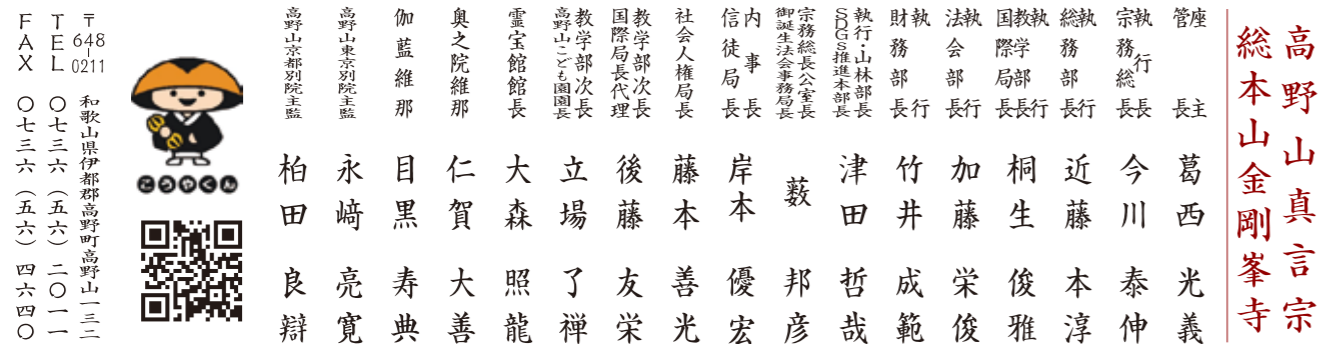 高野山真言宗
総本山金剛峯寺
座主
管長
葛西 光義
執行長
宗務総長
今川 泰伸
執行
総務部長
近藤 本淳
執行
教学部長
国際局長
桐生 俊雅
執行
法会部長
加藤 栄俊
執行
財務部長
竹井 成範
執行・山林部長
SDGs推進本部長
津田 哲哉
宗務総長公室長
御誕生法会事務局長
薮 邦彦
内事長
信徒局長
岸本 優宏
社会人権局長
藤本 善光
教学部次長
国際局長代理
後藤 友栄
教学部次長
高野山こども園園長
立場 了禅
霊宝館館長
大森 照龍
奥之院維那
仁賀 大善
伽藍維那
目黒 寿典
高野山東京別院主監
永﨑 亮寛
高野山京都別院主監
柏田 良辯
こうやくん
〒648-0211 和歌山県伊都郡高野町高野山一三二
TEL 〇七三六(五六)二〇一一
FAX 〇七三六(五六)四六四〇